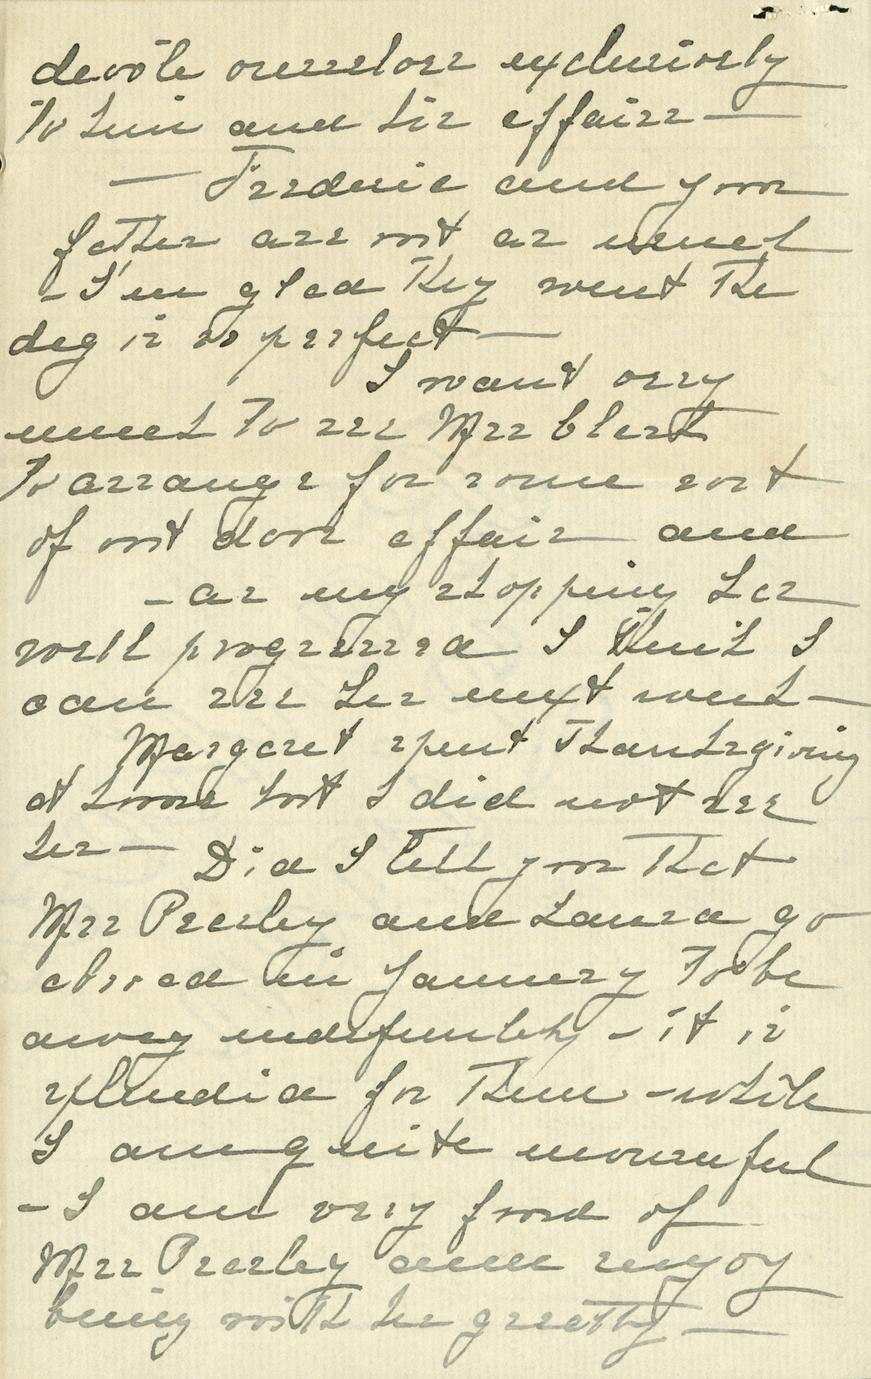 devote ourselves exclusively
to him and his affairs —
— Frederic and your
father are out as usual
- I'm glad they went the
day is so perfect —
I want very
much to see Mrs
to arrange for some sort
of out door affair and
- as my shopping has
well progressed I think I
can see her next week —
Margaret spent Thanksgiving
at home but I did not see
her — Did I tell you that
Mrs Presley and Laura go
abroad in January to be
away indefinitely - it is
splendid for them - while
I am quite mournful
- I am very fond of
Mrs Presley and enjoy
being with her greatly —